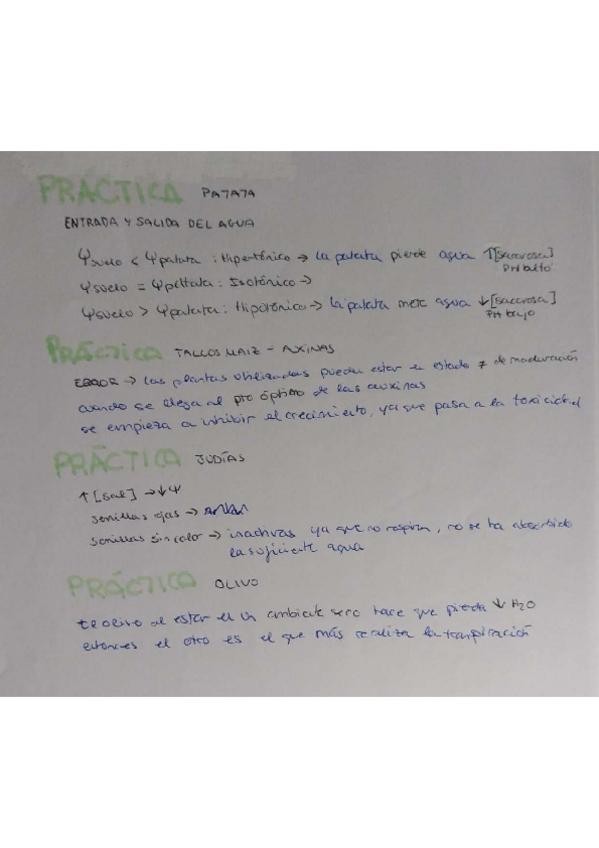 PRÁCTICA PATATA
ENTRADA Y SALIDA DEL AGUA
Ψsuelo < Ψpatata : Hipertónico → la patata pierde agua ↑[sacarosa]
PH alto
Ψsuelo = Ψpatata : Isotónico →
Ψsuelo > Ψpatata : Hipotónico → la patata mete agua ↓[sacarosa]
PH bajo
PRÁCTICA TALLOS MAIZ - AUXINAS
ERROR → Las plantas utilizadas pueden estar en estado ≠ de maduración
cuando se llega al pto óptimo de las auxinas
se empieza a inhibir el crecimiento, ya que pasa a la toxicidad
PRÁCTICA JUDÍAS
↑ [sal] → ↓Ψ
semillas rojas →
semillas sin color → inactivas ya que no respiran, no se ha absorbido
la suficiente agua
PRÁCTICA OLIVO
El olivo al estar en un ambiente seco hace que pierda ↓ H2O
entonces el otro es el que más realiza la transpiración